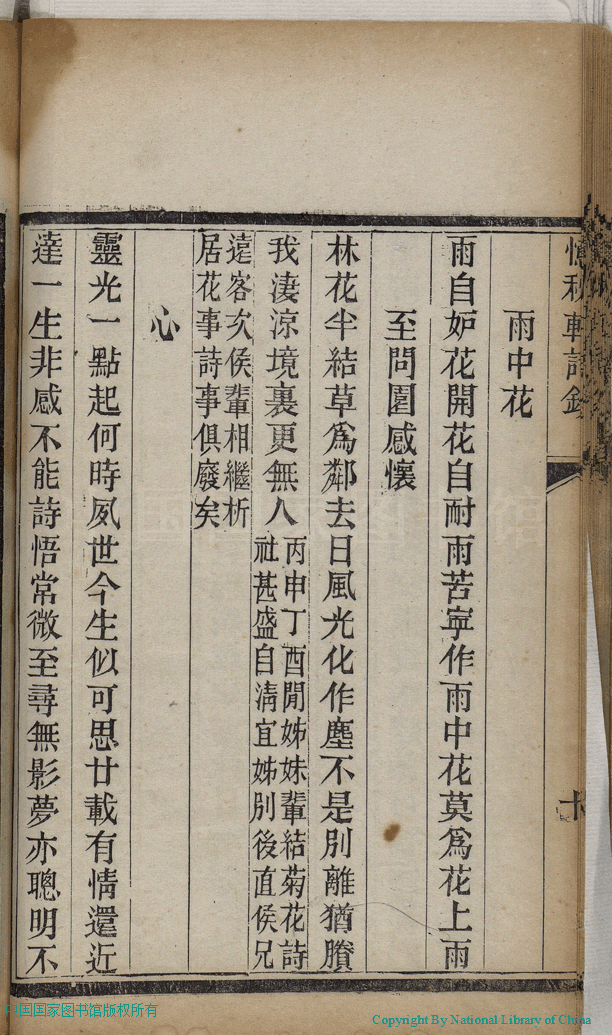 軒詩
雨中花
雨自妒花開花自耐雨苦寧作雨中花莫為花上雨
至問園感懷
林花半結草為鄰去日風光化作塵不是別離猶賸
我淒涼境裏更無人丙申丁酉閒姊妹輩結菊花詩
社甚盛自淸宜姊別後直侯兄
遠客次侯輩相繼析
居花事詩事俱廢矣
心
靈光一點起何時夙世今生似可思廿載有情還近
達一生非感不能詩悟常微至尋無影夢亦聰明不
中国国家图书馆版权所有
Copyright By National Library of China